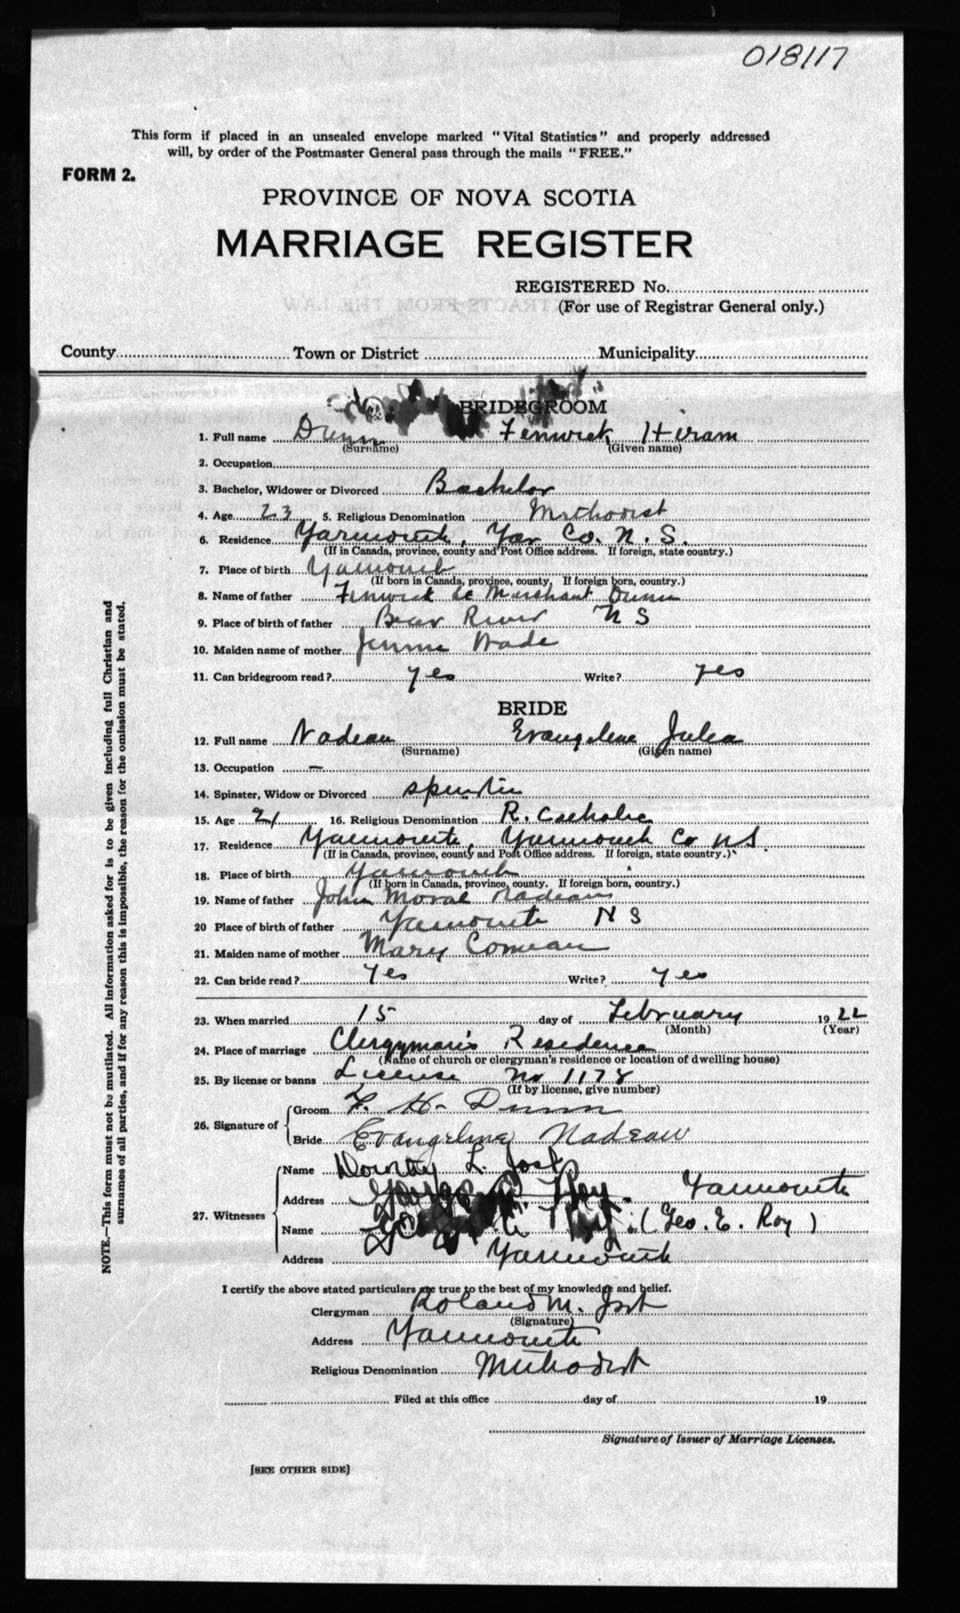 018117
This form if placed in an unsealed envelope marked "Vital Statistics" and properly addressed
will, by order of the Postmaster General pass through the mails "FREE."
FORM 2.
PROVINCE OF NOVA SCOTIA
MARRIAGE REGISTER
REGISTERED No.
(For use of Registrar General only.)
County Town or District Municipality
BRIDEGROOM
1. Full name Dunn Fenwick Hiram
(Surname) (Given name)
2. Occupation
3. Bachelor, Widower or Divorced Bachelor
4. Age 23 5. Religious Denomination Methodist
6. Residence Yarmouth, Yar Co. N. S.
(If in Canada, province, county and Post Office address. If foreign, state country.)
7. Place of birth Yarmouth
(If born in Canada, province, county. If foreign born, country.)
8. Name of father Fenwick Le Marchant Dunn
9. Place of birth of father Bear River N S
10. Maiden name of mother Jennie Wade
11. Can bridegroom read? yes Write? yes
BRIDE
12. Full name Nadeau Evangeline Julia
(Surname) (Given name)
13. Occupation —
14. Spinster, Widow or Divorced spinster
15. Age 21 16. Religious Denomination R. Catholic
17. Residence Yarmouth, Yarmouth Co N S.
(If in Canada, province, county and Post Office address. If foreign, state country.)
18. Place of birth Yarmouth
(If born in Canada, province, county. If foreign born, country.)
19. Name of father John Nadeau
20 Place of birth of father Yarmouth N S
21. Maiden name of mother Mary Comeau
22. Can bride read? Yes Write? yes
23. When married 15 day of February 1922
(Month) (Year)
24. Place of marriage Clergyman's Residence
(Name of church or clergyman's residence or location of dwelling house)
25. By license or banns License No 1178
(If by license, give number)
26. Signature of Groom F. H. Dunn
Bride Evangeline Nadeau
27. Witnesses Name Dorothy L. Jost
Address Yarmouth
Name (Geo. E. Roy)
Address Yarmouth
I certify the above stated particulars are true to the best of my knowledge and belief.
Clergyman Roland M. Jost
(Signature)
Address Yarmouth
Religious Denomination Methodist
Filed at this office day of 19
Signature of Issuer of Marriage Licenses.
[SEE OTHER SIDE]
NOTE.—This form must not be mutilated. All information asked for is to be given including full Christian and
surnames of all parties, and if for any reason this is impossible, the reason for the omission must be stated.